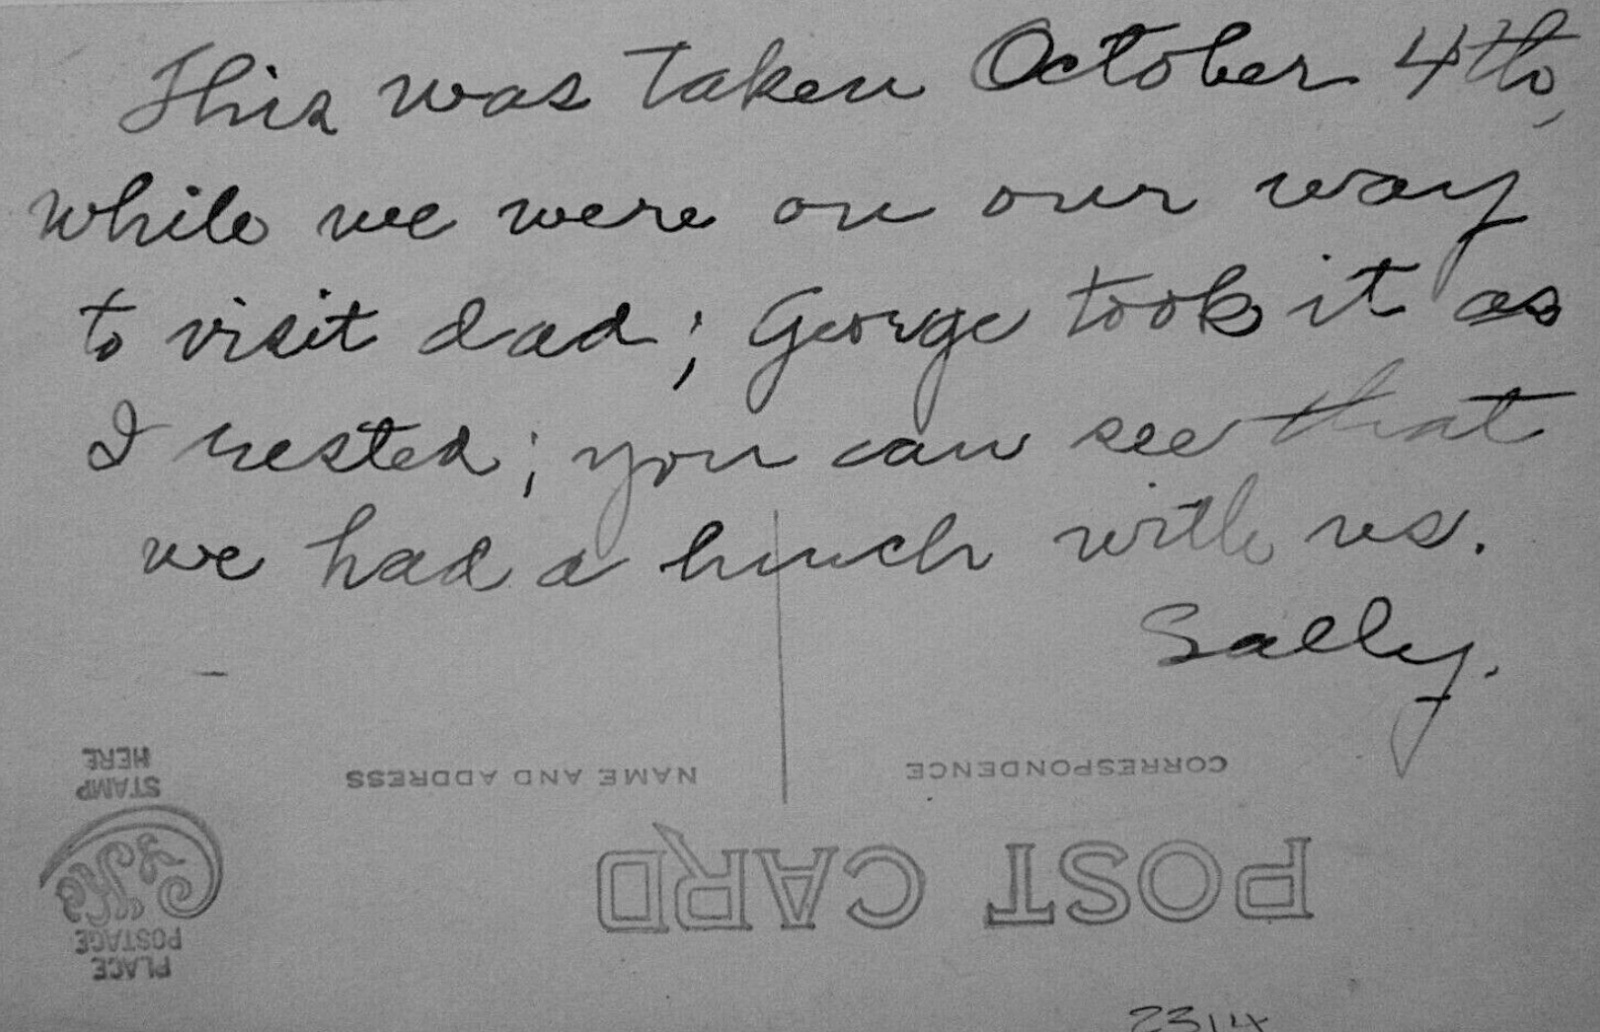 This was taken October 4th,
while we were on our way
to visit dad; George took it as
I rested; you can see that
we had a lunch with us.
Sally.
CORRESPONDENCE
NAME AND ADDRESS
POST CARD
PLACE
POSTAGE
STAMP
HERE
2314